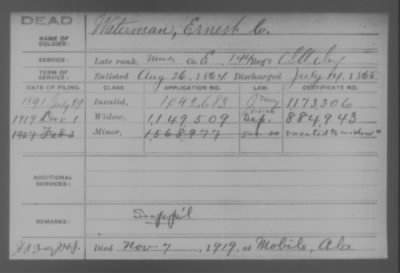 DEAD
NAME OF SOLDIER: Waterman, Ernest C.
SERVICE: Late rank, Co. E, 144 Reg't
TERM OF SERVICE: Enlisted Aug 26, 1864 Discharged July 14, 1865
DATE OF FILING. CLASS. APPLICATION NO. LAW. CERTIFICATE NO.
1891 July Invalid, 1,042,683 1173,306
1919 Dec 1 Widow, 1,149,509 884,943
1927 Feb 3 Minor, 1,568,977
ADDITIONAL SERVICES:
REMARKS: Suppl
Died Nov 7, 1919, at Mobile, Ala